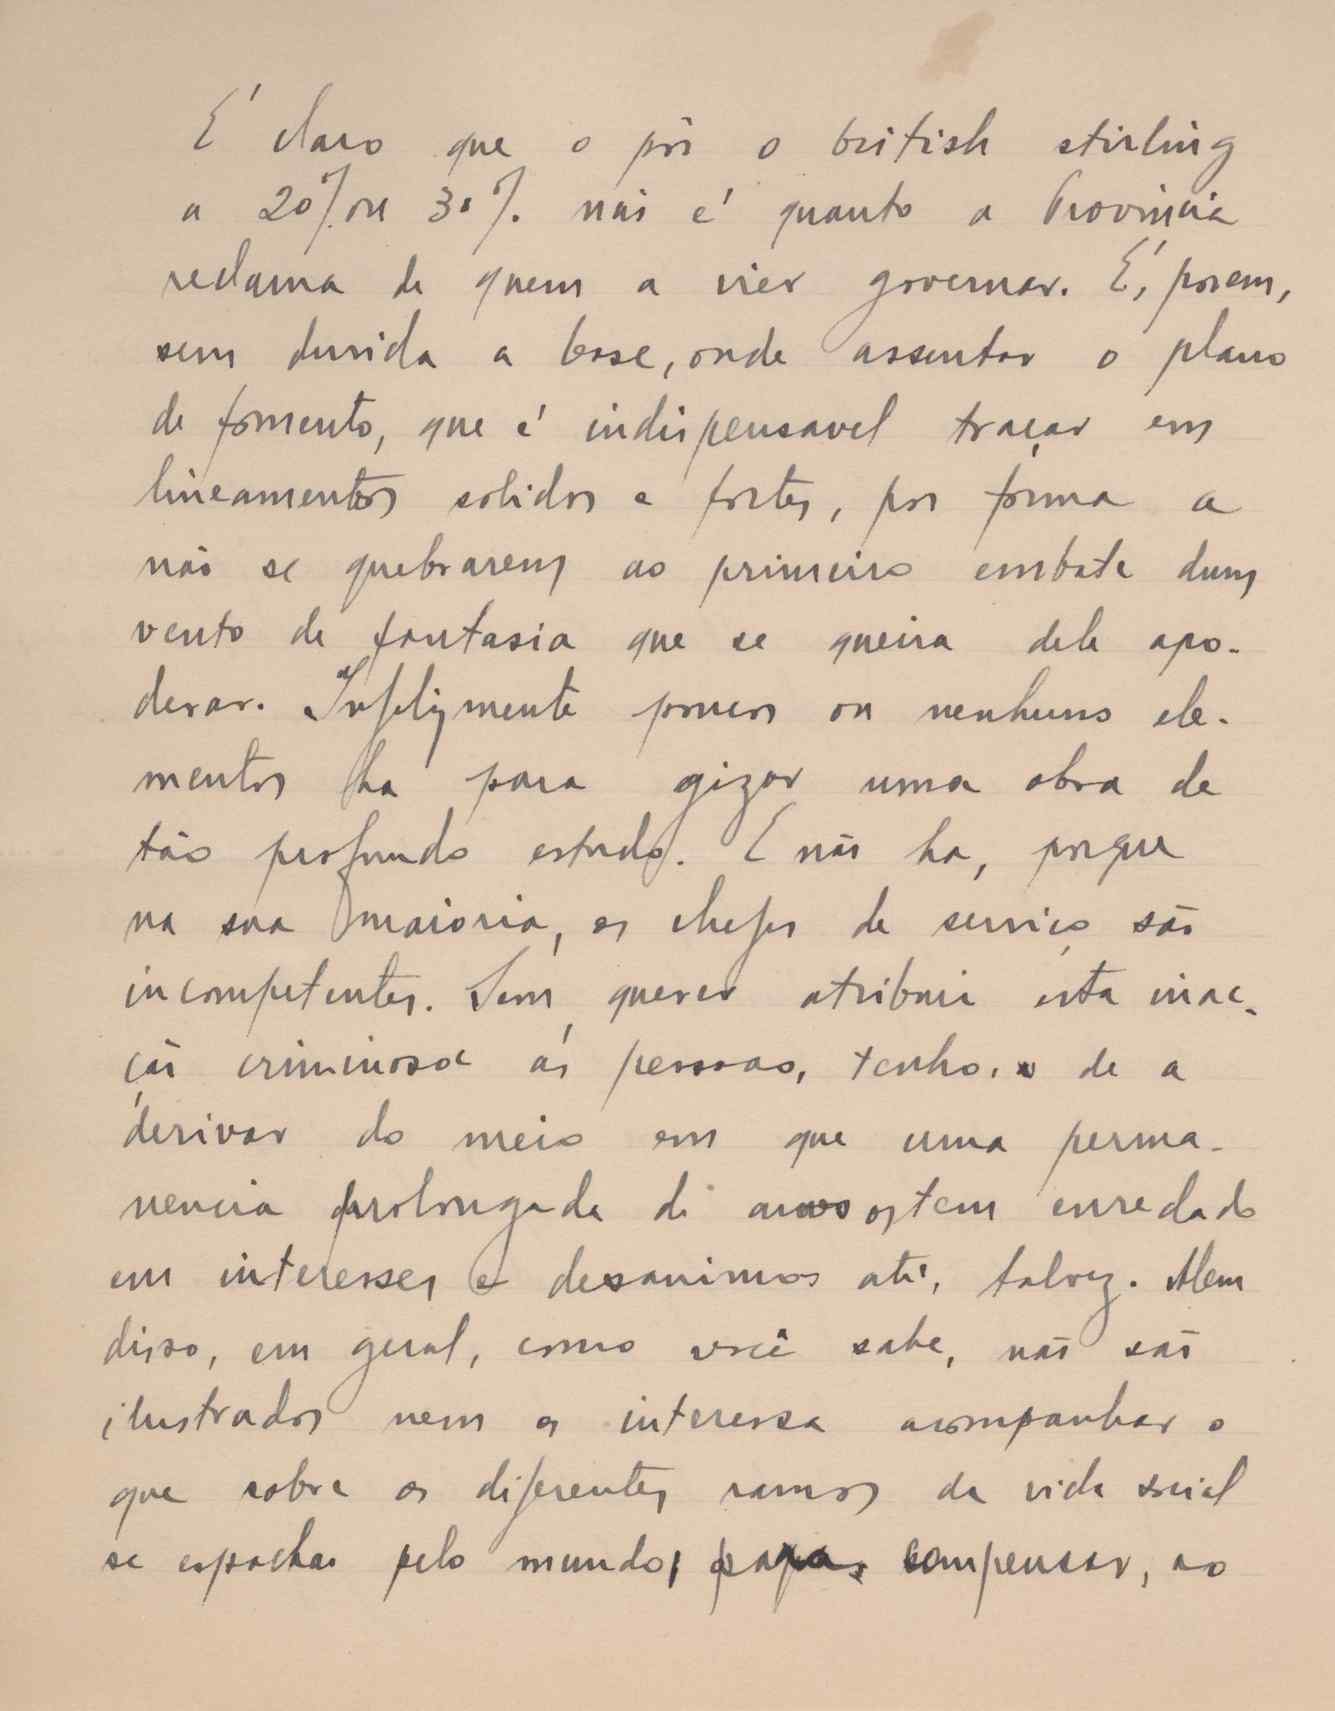 É claro que o pôr o british stirling
a 20% ou 30%. não é quanto a Provincia
reclama de quem a vier governar. É, porem,
sem duvida a base, onde assentar o plano
de fomento, que é indispensavel traçar em
lineamentos solidos e fortes, por fórma a
não se quebrarem ao primeiro embate dum
vento de fantasia que se queira dele apo-
derar. Infelizmente poucos ou nenhuns ele-
mentos ha para gizar uma obra de
tão profundo estudo. E não ha, porque
na sua maioria, os chefes de serviço são
incompetentes. Sem querer atribuir esta inac-
ção criminosa ás pessoas, tenho de a
derivar do meio em que uma perma-
nencia prolongada de anos os tem enredado
em interesses e desanimos até, talvez. Alem
disso, em geral, como você sabe, não são
ilustrados nem os interessa acompanhar o
que sobre os diferentes ramos da vida social
se espacha pelo mundo, para compensar, ao